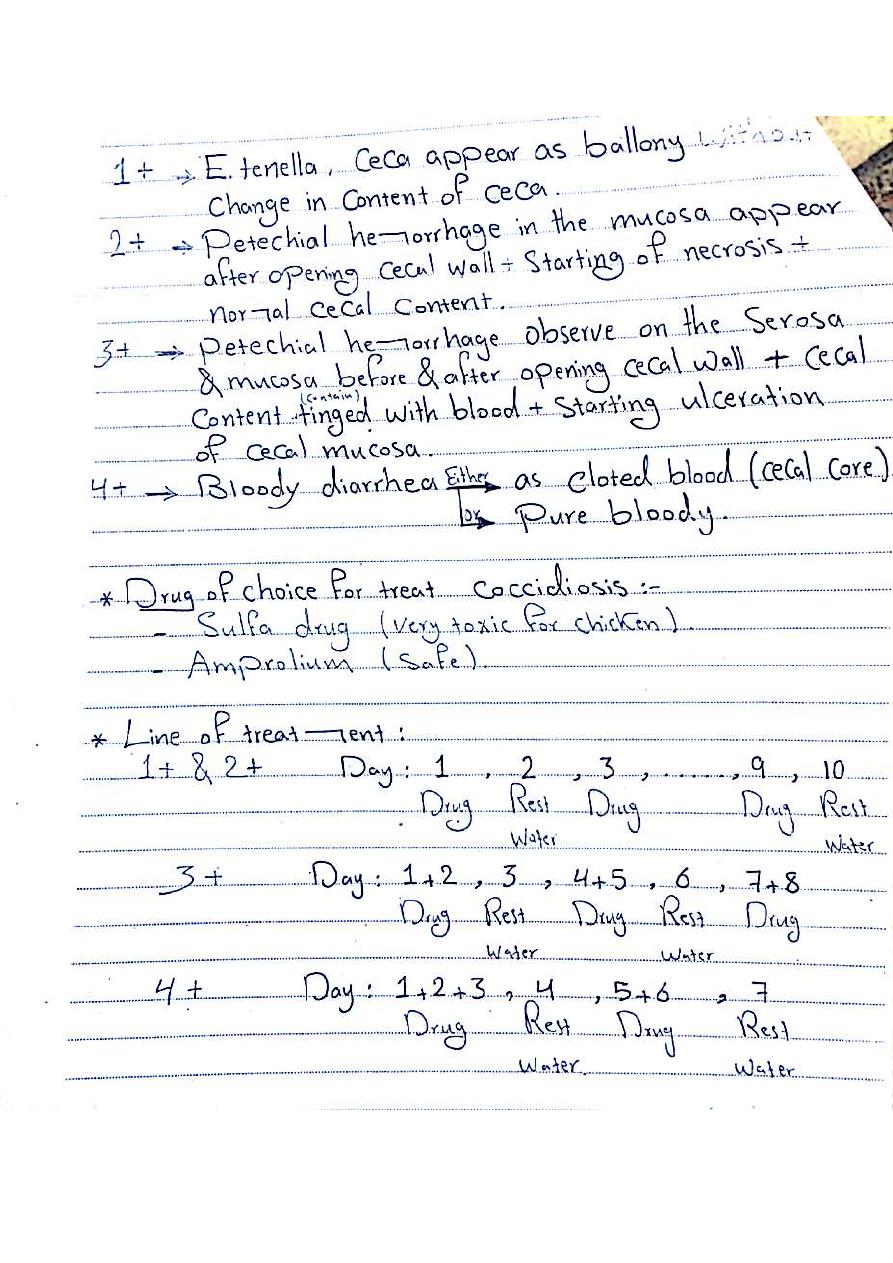 1+ → E. tenella, Ceca appear as ballony without
Change in Content of ceca.
2+ → Petechial hemorrhage in the mucosa appear
after opening cecal wall + Starting of necrosis +
normal cecal Content.
3+ → Petechial hemorrhage observe on the Serosa
& mucosa before & after opening cecal wall + Cecal
(Contain)
Content tinged with blood + Starting ulceration
of cecal mucosa.
4+ → Bloody diarrhea Either → as cloted blood (cecal core)
or → Pure bloody.
* Drug of choice for treat coccidiosis :-
- Sulfa drug (very toxic for chicken)
- Amprolium (Safe).
* Line of treatment :
1+ & 2+ Day : 1 , 2 , 3 , ......, 9 , 10
Drug Rest Drug Drug Rest
Water Water
3+ Day : 1+2 , 3 , 4+5 , 6 , 7+8
Drug Rest Drug Rest Drug
Water Water
4+ Day : 1+2+3 , 4 , 5+6 , 7
Drug Rest Drug Rest
Water Water